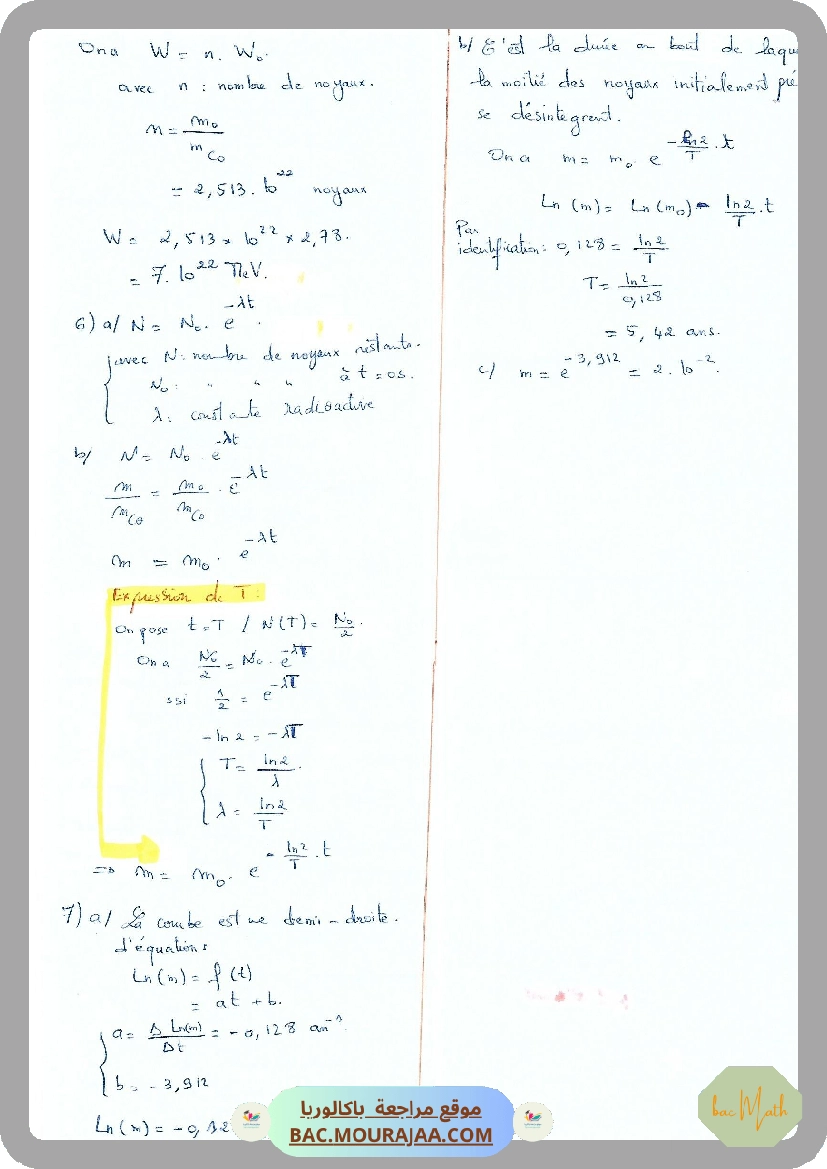 On a W = n. W₀.
avec n : nombre de noyaux.
n = m₀ / m_Co
= 2,513. 10²² noyaux
W = 2,513 × 10²² × 2,78.
= 7. 10²² MeV.
6) a/ N = N₀. e^(-λt).
avec N: nombre de noyaux restants.
N₀: " " " à t = 0s.
λ: constante radioactive
b/ N = N₀ e^(-λt)
m / m_Co = m₀ / m_Co . e^(-λt)
m = m₀ . e^(-λt)
Expression de T :
On pose t = T / N(T) = N₀/2.
On a N₀/2 = N₀ . e^(-λT)
ssi 1/2 = e^(-λT)
-ln 2 = -λT
T = ln2 / λ.
λ = ln2 / T
=> m = m₀ . e^(- ln2/T . t)
7) a/ La courbe est une demi-droite.
d'équation:
Ln(m) = f(t)
= at + b.
a = Δ Ln(m) / Δt = -0,128 an⁻¹.
b = -3,912
Ln(m) = -0,12
b/ C'est la durée au bout de laque
la moitié des noyaux initialement pré
se désintègrent.
On a m = m₀ e^(- ln2/T . t)
Ln (m) = Ln (m₀) - ln2/T . t
Par
identification: 0,128 = ln2 / T
T = ln2 / 0,128
= 5,42 ans.
c/ m = e^(-3,912) = 2. 10⁻².
موقع مراجعة باكالوريا
BAC.MOURAJAA.COM
bac Math